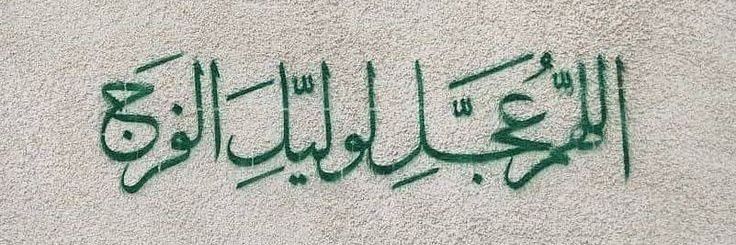 اللهمّ عُجَّلِ لوليّلِ الفَرَج